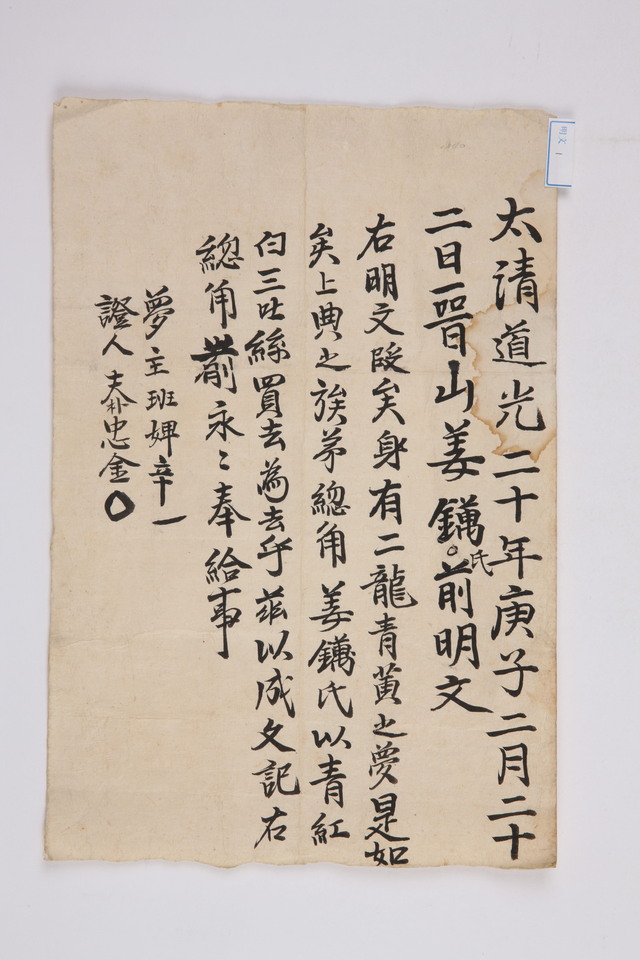 太清道光二十年庚子二月二十
二日晉山姜鏋氏前明文
右明文段矣身有二龍青黄之夢是如
矣上典之族弟總角姜鏋氏以青紅
白三吐絲買去為去乎茲以成文記右
總角前永〻奉給事
夢主班婢辛一
證人夫朴忠金
明文 1